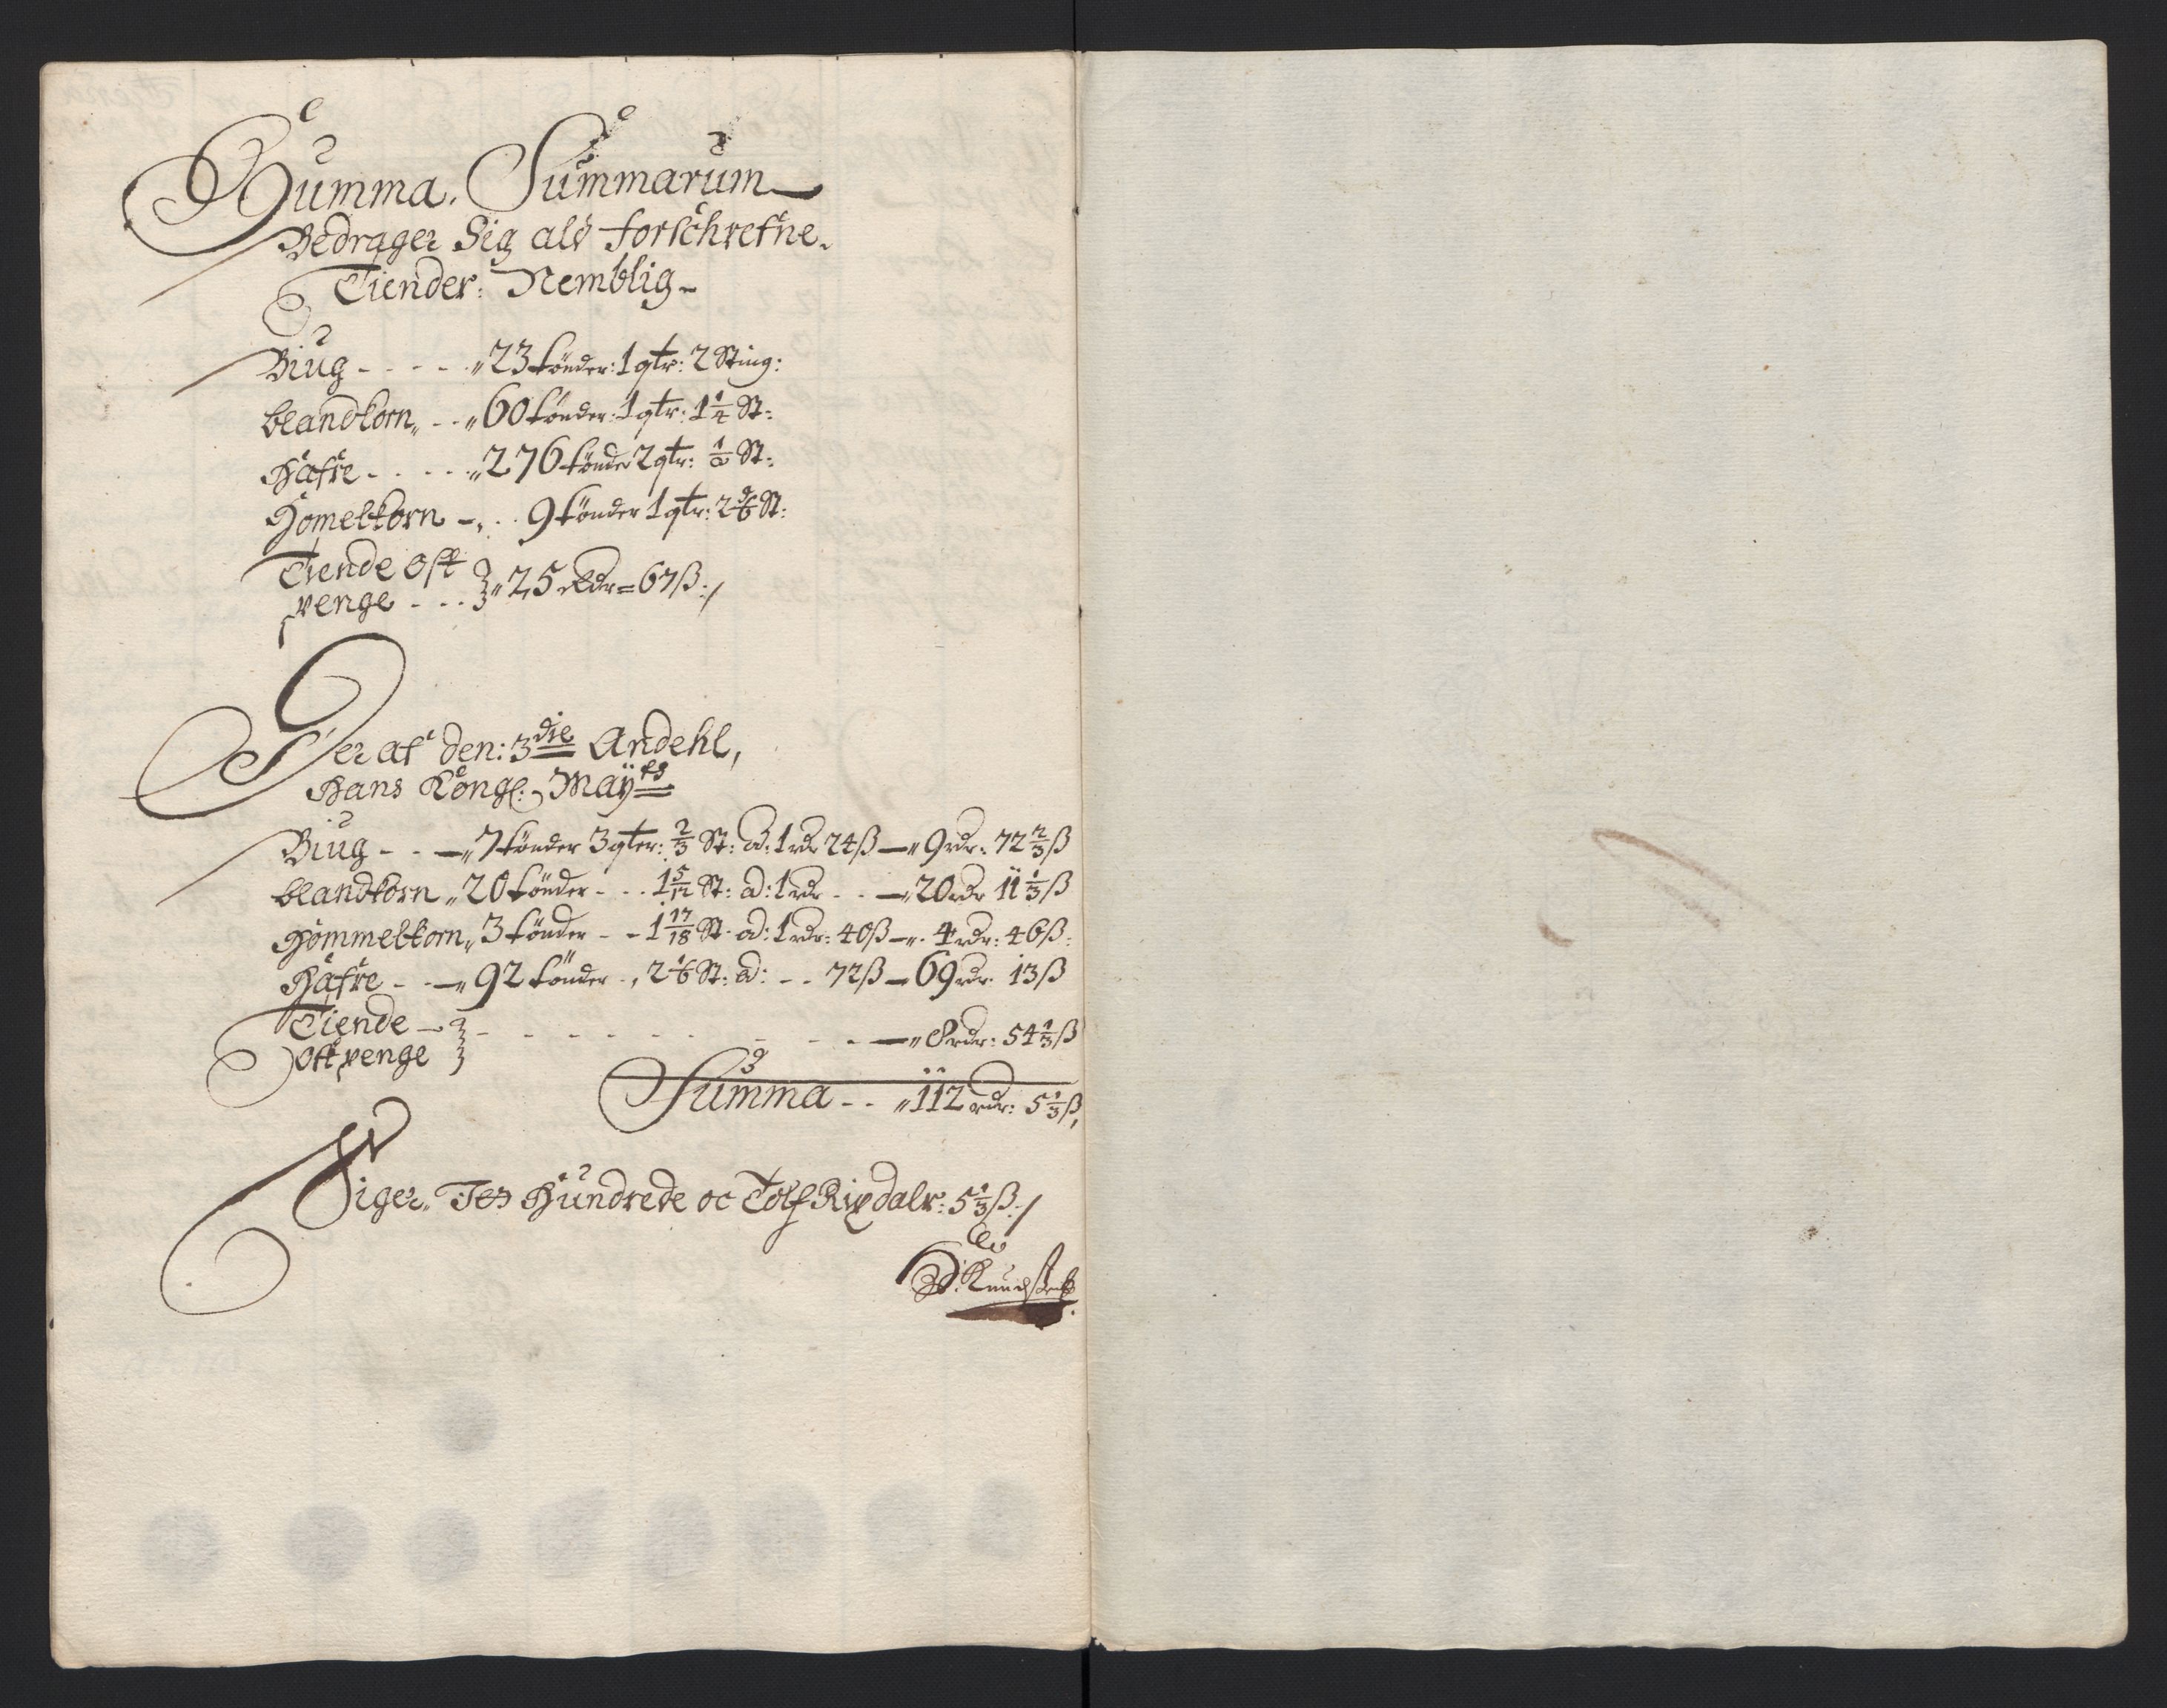 Summa. Summarum
Bedrager Sig als forschrefne.
Tiender: Nemblig-
Biug - - - - „23 tönder: 1 qtr: 2 Sting:
blandkorn„ - - „60 tönder: 1 qtr: 1 1/4 St:
Hafre - - - - „276 tönder 2 qtr: 1/2 St:
Homelkorn - „ - 9 tönder 1 qtr: 2 5/6 St:
Tiende Ost
penge - - - } „25 rdr = 67 ß:/
Her af den: 3die Andehl,
Hans Kongl: Mayts
Biug - - — „7 tönder 3 qter: 2/3 St: ad: 1 rdr 24 ß — „9 rdr: 72 2/3 ß
blandkorn „20 tönder - - 1 5/12 St: ad: 1 rdr - - — „20 rdr 11 1/3 ß
Hommelkorn„ 3 tönder - - 1 17/18 St. ad: 1 rdr: 40 ß — „ 4 rdr: 46 ß:
Hafre - - — „92 tönder - , 2 1/6 St: ad: - - 72 ß — 69 rdr: 13 ß
Tiende —
Ost penge } - - - - - - - - - — „8 rdr: 54 1/3 ß
Summa - - „112 rdr: 5 1/3 ß,
Siger. Et Hundrede oc Tolf Rixdalr: 5 1/3 ß:/